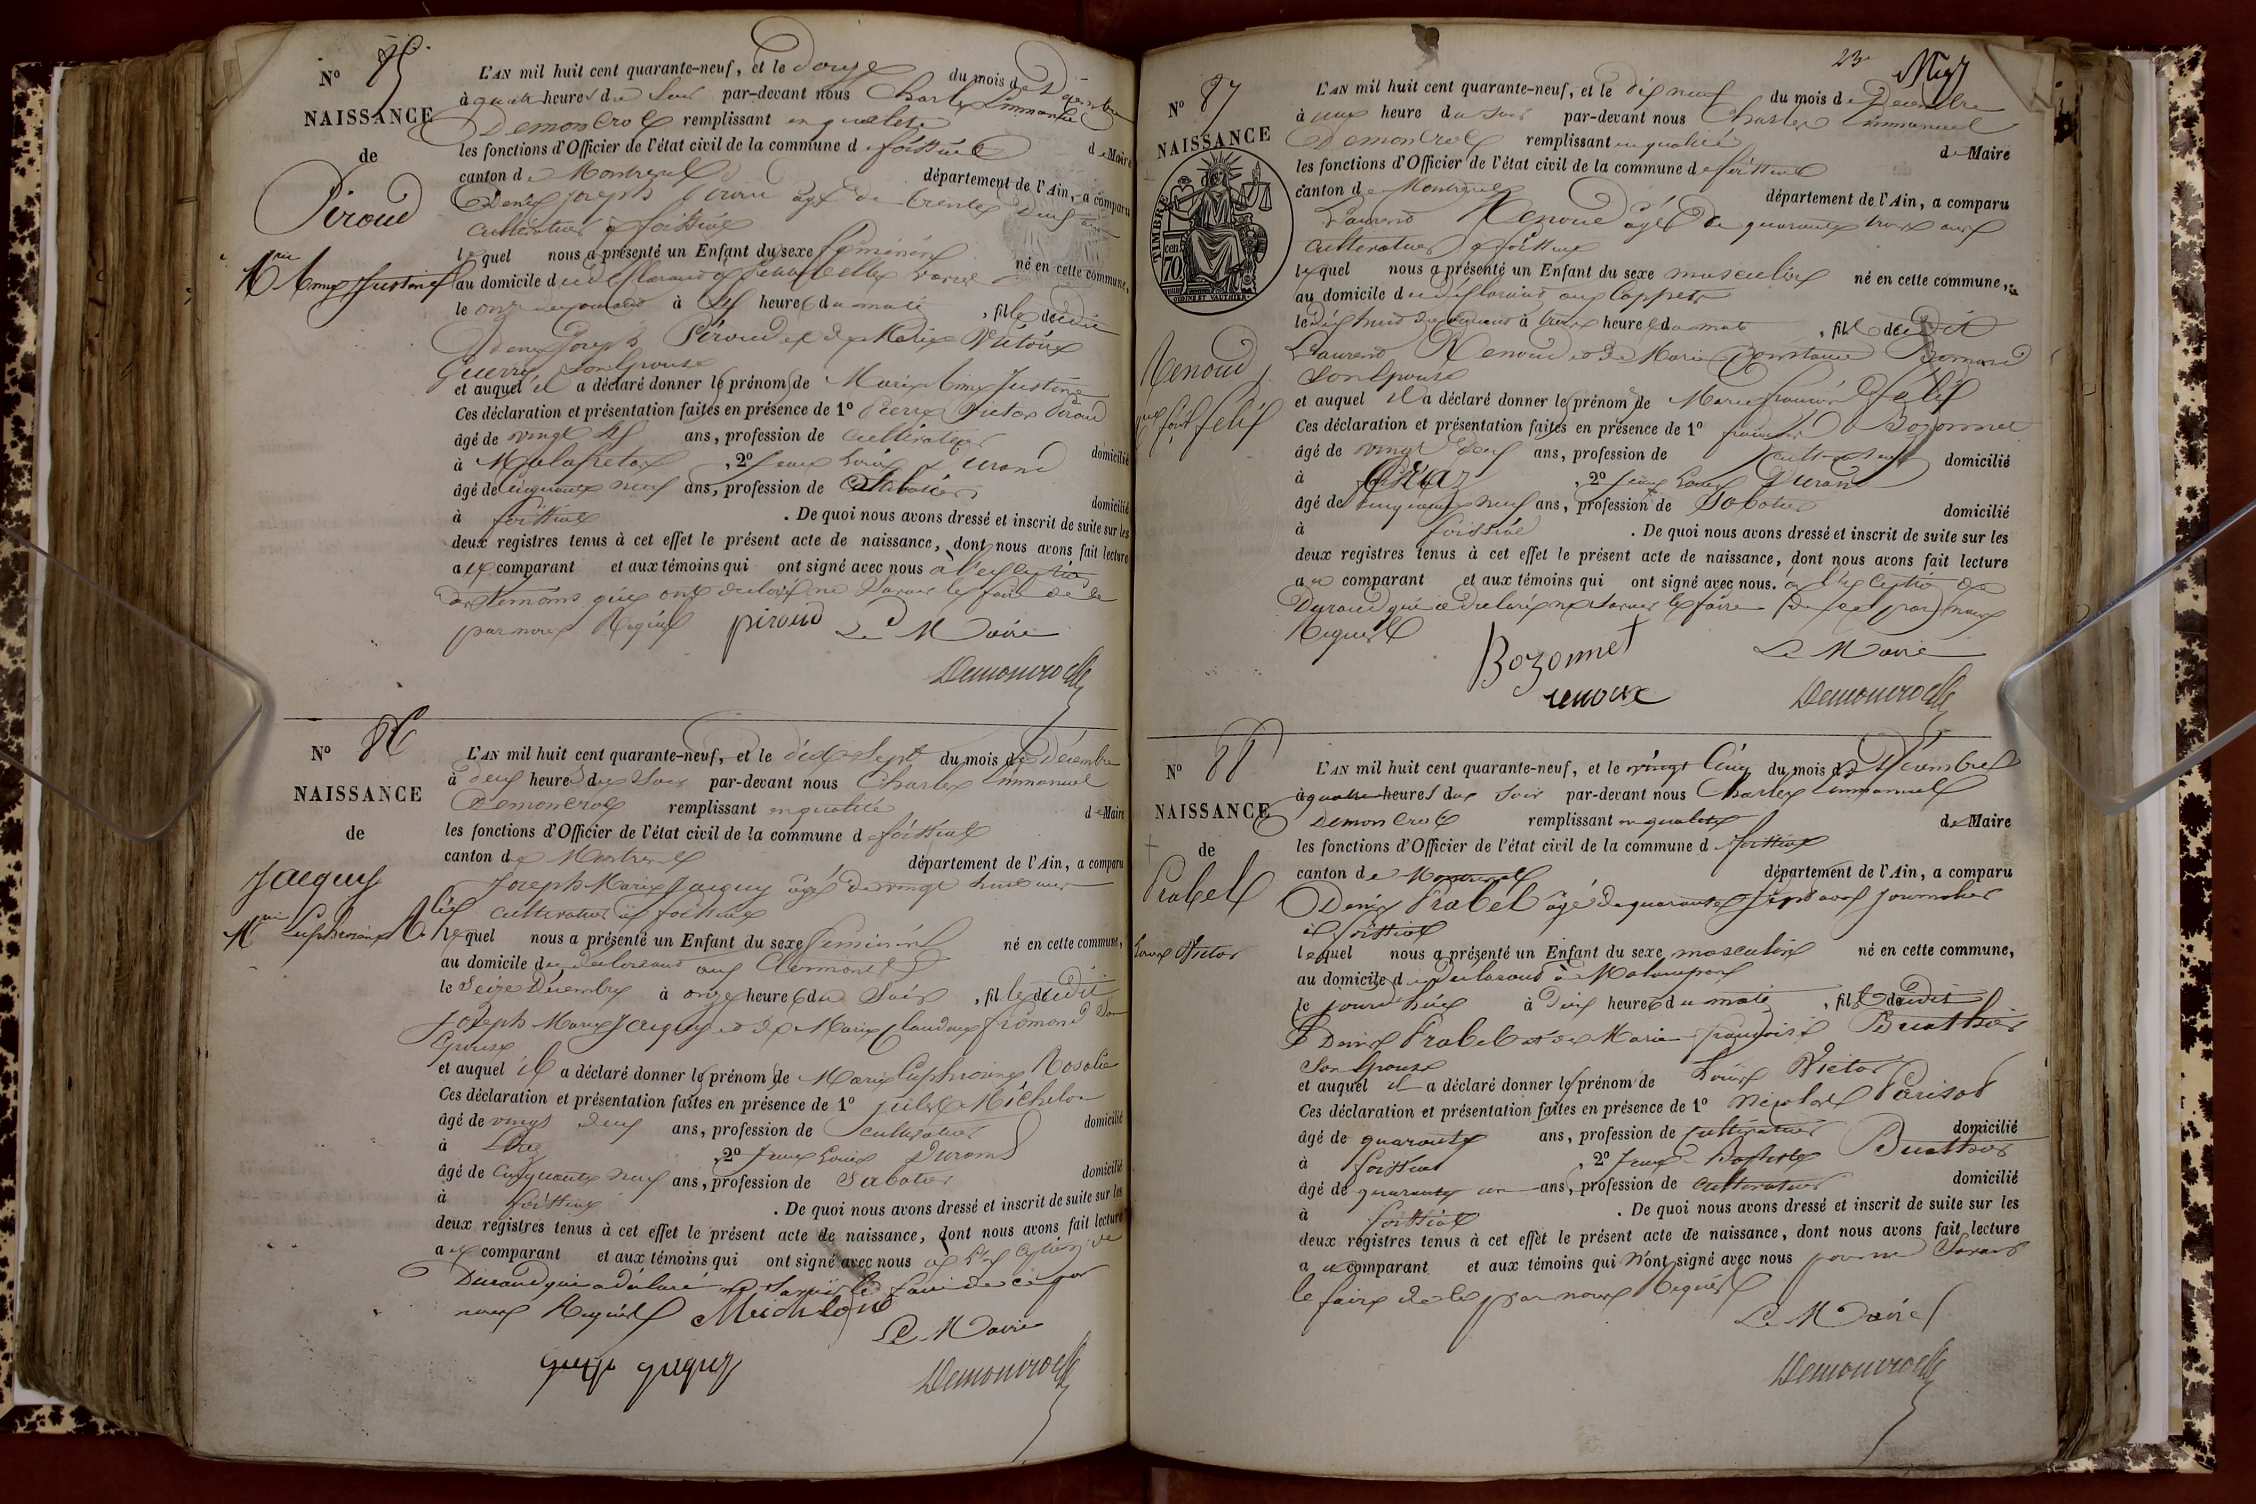 N° 85
NAISSANCE
de
Piroud
Mie Aimé Justine
L'AN mil huit cent quarante-neuf, et le douze du mois de Décembre
à quatre heures du Soir par-devant nous Charles Emmanuel
Demoncrol remplissant en qualité
les fonctions d'Officier de l'état civil de la commune de foissiat de Maire
canton de Montrevel département de l'Ain, a comparu
Denis Joseph Piroud agé de trente deux ans
cultivateur à foissiat
lequel nous a présenté un Enfant du sexe féminin né en cette commune,
au domicile du déclarant
le onze du courant à six heures du matin, fille dudit
Denis Joseph Piroud et de Marie Victoire
Guerry Son Epouse
et auquel il a déclaré donner les prénoms de Marie Aimé Justine
Ces déclaration et présentation faites en présence de 1° Pierre Victor Piroud
âgé de vingt six ans, profession de cultivateur domicilié
à Malafretaz, 2° Jean Louis Durand
âgé de cinquante neuf ans, profession de Sabotier domicilié
à foissiat. De quoi nous avons dressé et inscrit de suite sur les
deux registres tenus à cet effet le présent acte de naissance, dont nous avons fait lecture
au comparant et aux témoins qui ont signé avec nous à l'exception
des témoins qui ont déclaré ne Savoir le faire de ce
par nous Requis piroud Le Maire
Demoncroll
N° 86
NAISSANCE
de
Jacquy
Mie Euphrosine Rosalie
L'AN mil huit cent quarante-neuf, et le dix Sept du mois de Décembre
à deux heures du Soir par-devant nous Charles Emmanuel
Demoncrol remplissant en qualité de Maire
les fonctions d'Officier de l'état civil de la commune de foissiat
canton de Montrevel département de l'Ain, a comparu
Joseph Marie Jacquy âgé de vingt huit ans
cultivateur à foissiat
lequel nous a présenté un Enfant du sexe féminin né en cette commune,
au domicile du déclarant aux Clermonts
le Seize Décembre à onze heures du Soir, fille dudit
Joseph Marie Jacquy et de Marie Claudine fromond Son
Epouse
et auquel il a déclaré donner les prénoms de Marie Euphrosine Rosalie
Ces déclaration et présentation faites en présence de 1° Jules Michelon
âgé de vingt deux ans, profession de cultivateur domicilié
à, 2° Jean Louis Durand
âgé de cinquante neuf ans, profession de Sabotier domicilié
à foissiat. De quoi nous avons dressé et inscrit de suite sur les
deux registres tenus à cet effet le présent acte de naissance, dont nous avons fait lecture
au comparant et aux témoins qui ont signé avec nous à l'exception de
Durand qui a déclaré ne Savoir le faire de ce par
nous Requis Michelon
Le Maire
Demoncroll
23
N° 87
NAISSANCE
TIMBRE
cen 70
Renoud
félix
L'AN mil huit cent quarante-neuf, et le dix neuf du mois de Décembre
à une heure du soir par-devant nous Charles Emmanuel
Demoncrol remplissant en qualité de Maire
les fonctions d'Officier de l'état civil de la commune de foissiat
canton de Montrevel département de l'Ain, a comparu
Laurend Renoud âgé de quarante trois ans
cultivateur à foissiat
lequel nous a présenté un Enfant du sexe masculin né en cette commune,
au domicile du déclarant aux Coppets
le dix neuf du courant à trois heures du matin, fils dudit
Laurend Renoud et de Marie Constance
Son Epouse
et auquel il a déclaré donner les prénoms de Marie françois félix
Ces déclaration et présentation faites en présence de 1° françois Bozonnet
âgé de vingt deux ans, profession de cultivateur domicilié
à, 2° Jean Louis Durand
âgé de cinquante neuf ans, profession de Sabotier domicilié
à foissiat. De quoi nous avons dressé et inscrit de suite sur les
deux registres tenus à cet effet le présent acte de naissance, dont nous avons fait lecture
au comparant et aux témoins qui ont signé avec nous. à l'exception de
Durand qui a déclaré ne Savoir le faire de ce par nous
Requis
Bozonnet Le Maire
renoux Demoncroll
N° 88
NAISSANCE
de
Prabel
Louis Victor
L'AN mil huit cent quarante-neuf, et le vingt Cinq du mois de Décembre
à quatre heures du soir par-devant nous Charles Emmanuel
Demoncrol remplissant en qualité de Maire
les fonctions d'Officier de l'état civil de la commune de foissiat
canton de Montrevel département de l'Ain, a comparu
Denis Prabel âgé de quarante Sept ans Journalier
à foissiat
lequel nous a présenté un Enfant du sexe masculin né en cette commune,
au domicile du déclarant à
le jourd'hui à Dix heures du matin, fils dudit
Denis Prabel et de Marie françoise Buathier
Son Epouse
et auquel il a déclaré donner les prénoms de Louis Victor
Ces déclaration et présentation faites en présence de 1° Nicolas Parisot
âgé de quarante ans, profession de cultivateur domicilié
à foissiat, 2° Jean-Baptiste Buathier
âgé de quarante un ans, profession de cultivateur domicilié
à foissiat. De quoi nous avons dressé et inscrit de suite sur les
deux registres tenus à cet effet le présent acte de naissance, dont nous avons fait lecture
au comparant et aux témoins qui n'ont signé avec nous pour ne Savoir
le faire de ce par nous Requis
Le Maire
Demoncroll